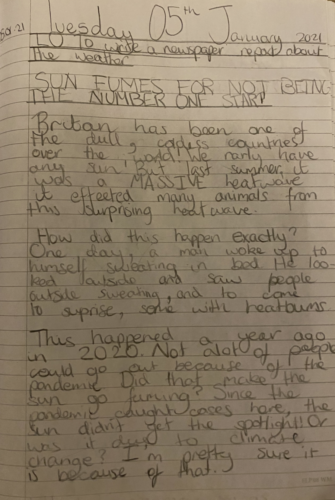 Tuesday 05th January 2021
LO To write a newspaper report about
the weather
SUN FUMES FOR NOT BEING
THE NUMBER ONE STAR!
Britan has been one of
the dull, coldess countries
over the world! We rarly have
any sun, but last summer, it
was a MASSIVE heatwave
it effected many animals from
this surprising heatwave.
How did this happen exactly?
One day, a man woke up to
himself sweating in bed He loo-
ked outside and saw people
outside sweating, and to come
to suprise, some with heatburns
Thus happened a year ago
in 2020. Not alot of people
could go out because of the
pandemic Did that make the
sun go fuming? Since the
pandemic caught cases here, the
sun didn't get the spotlight! Or
was it due to climate
change? I'm pretty sure it
is because of that.